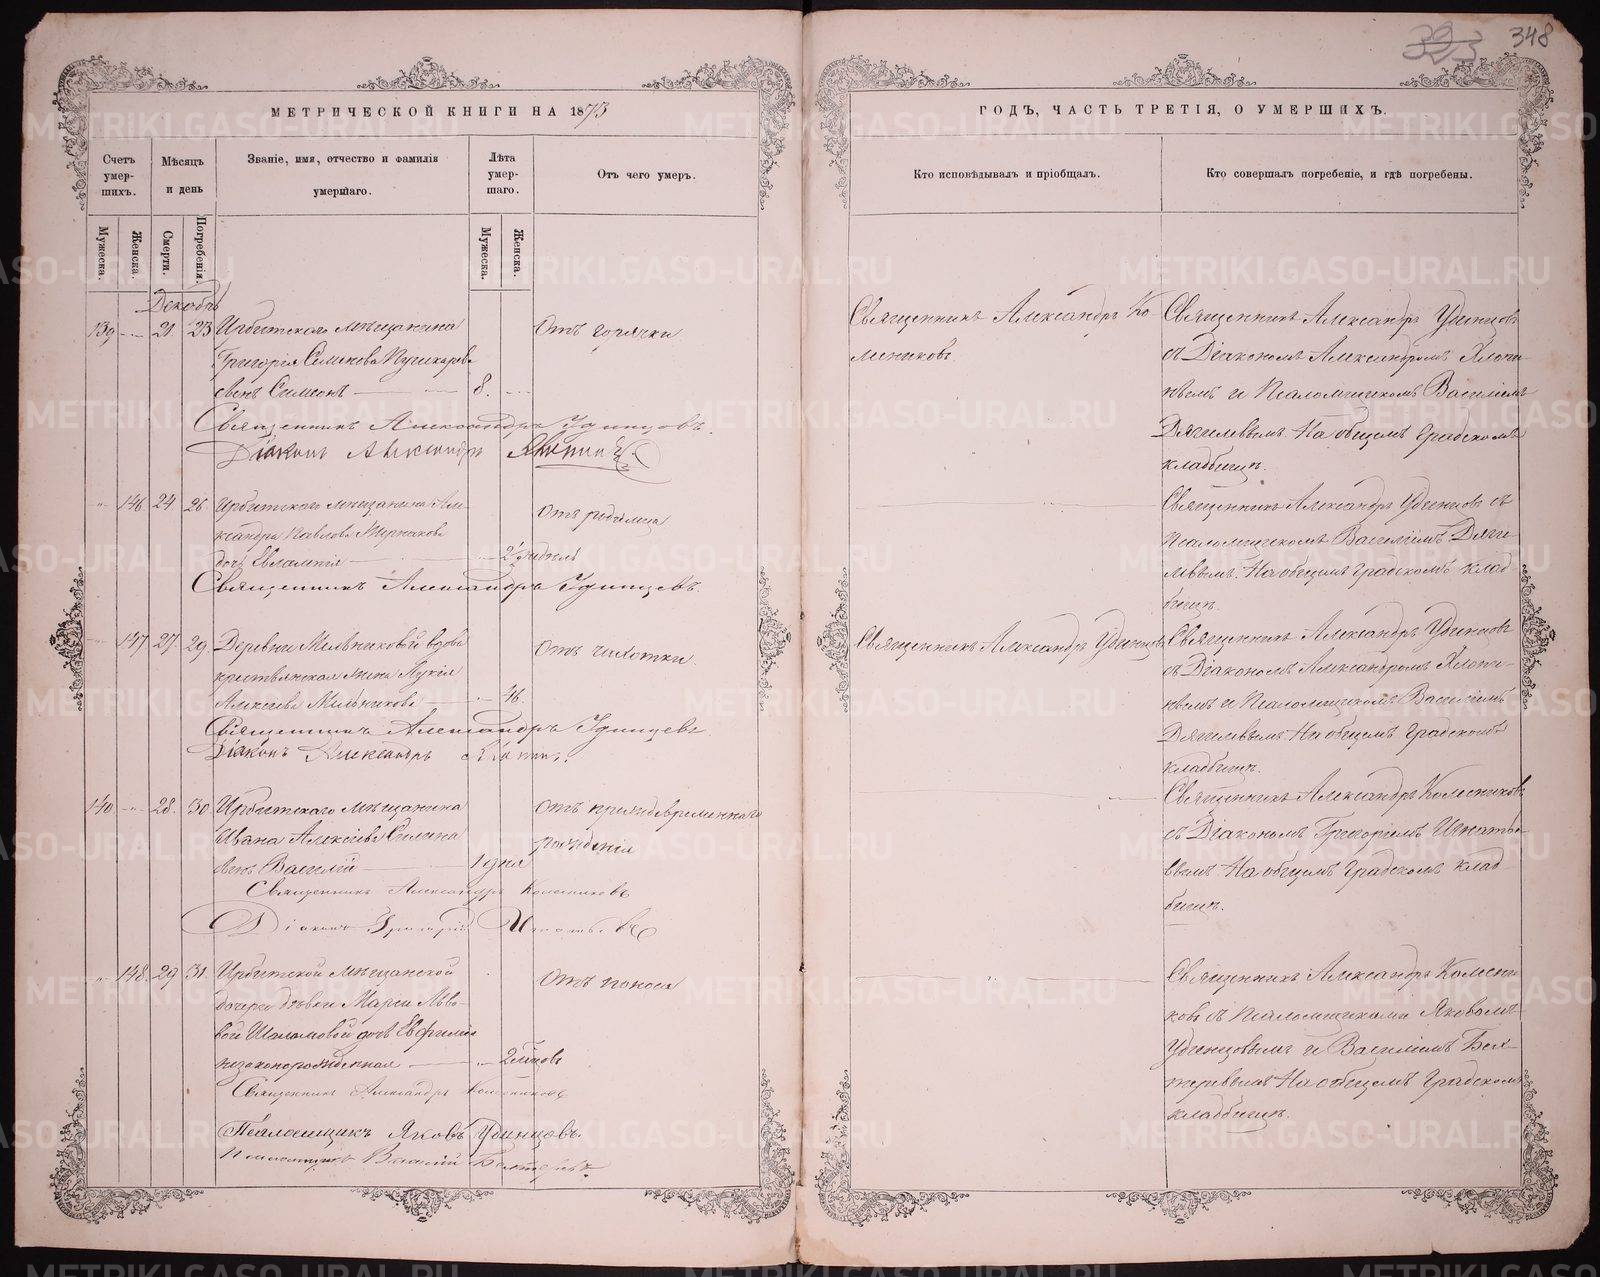 348
МЕТРИЧЕСКОЙ КНИГИ НА 1873
ГОДЪ, ЧАСТЬ ТРЕТІЯ, О УМЕРШИХЪ.
Счетъ умер-шихъ.
Мѣсяцъ и день
Званіе, имя, отчество и фамилія умершаго.
Лѣта умер-шаго.
Отъ чего умеръ.
Кто исповѣдывалъ и пріобщалъ.
Кто совершалъ погребеніе, и гдѣ погребены.
Мужеска.
Женска.
Смерти.
Погребенія.
Мужеска.
Женска.
Декабрь
139 21 23 Ирбитскаго мѣщанина
Григорія Семенова
сынъ Симеонъ 8.
Отъ горячки
Священникъ Александръ Ко-
лесниковъ.
Священникъ Александръ Удинцовъ
съ Діакономъ Александромъ
и Псаломщикомъ Василіемъ
Дягилевымъ. На общемъ градскомъ
кладбищѣ.
Священникъ Александръ Удинцовъ.
Діаконъ Александръ
146. 24 26. Ирбитскаго мѣщанина Але-
ксандра Павлова
дочь Евлампія 2 недѣль
Отъ родимца
Священникъ Александръ Удинцовъ съ
Псаломщикомъ Василіемъ Дяги-
левымъ. На общемъ градскомъ клад-
бищѣ.
Священникъ Александръ Удинцевъ.
147 27. 29. Деревни Мельниковой вдова
крестьянская жена
Алексѣева Мельникова 46.
Отъ чахотки.
Священникъ Александръ Удинцовъ
Священникъ Александръ Удинцовъ
съ Діакономъ Александромъ
и Псаломщикомъ Василіемъ
Дягилевымъ На общемъ градскомъ
кладбищѣ.
Священникъ Александръ Удинцевъ
Діаконъ Александръ
140. 28. 30. Ирбитскаго мѣщанина
Ивана Алексѣева
сынъ Василій 1 дня
Отъ преждевременнаго
рожденія
Священникъ Александръ Колесниковъ
съ Діакономъ Григоріемъ Игнатье-
вымъ На общемъ градскомъ клад-
бищѣ.
Священникъ Александръ Колесниковъ
Діаконъ Григорій Игнатьевъ
148. 29 31. Ирбитской мѣщанской
дочери дѣвки Маріи Льво-
вой Шаламовой дочь Евфимія
незаконорожденная 2 годовъ
Отъ поноса
Священникъ Александръ Колесни-
ковъ съ Псаломщиками Яковомъ
Удинцовымъ и Василіемъ Бех-
теревымъ На общемъ градскомъ
кладбищѣ.
Священникъ Александръ Колесниковъ
Псаломщикъ Яковъ Удинцовъ.
Псаломщикъ Василій Бехтеревъ
METRIKI.GASO-URAL.RU